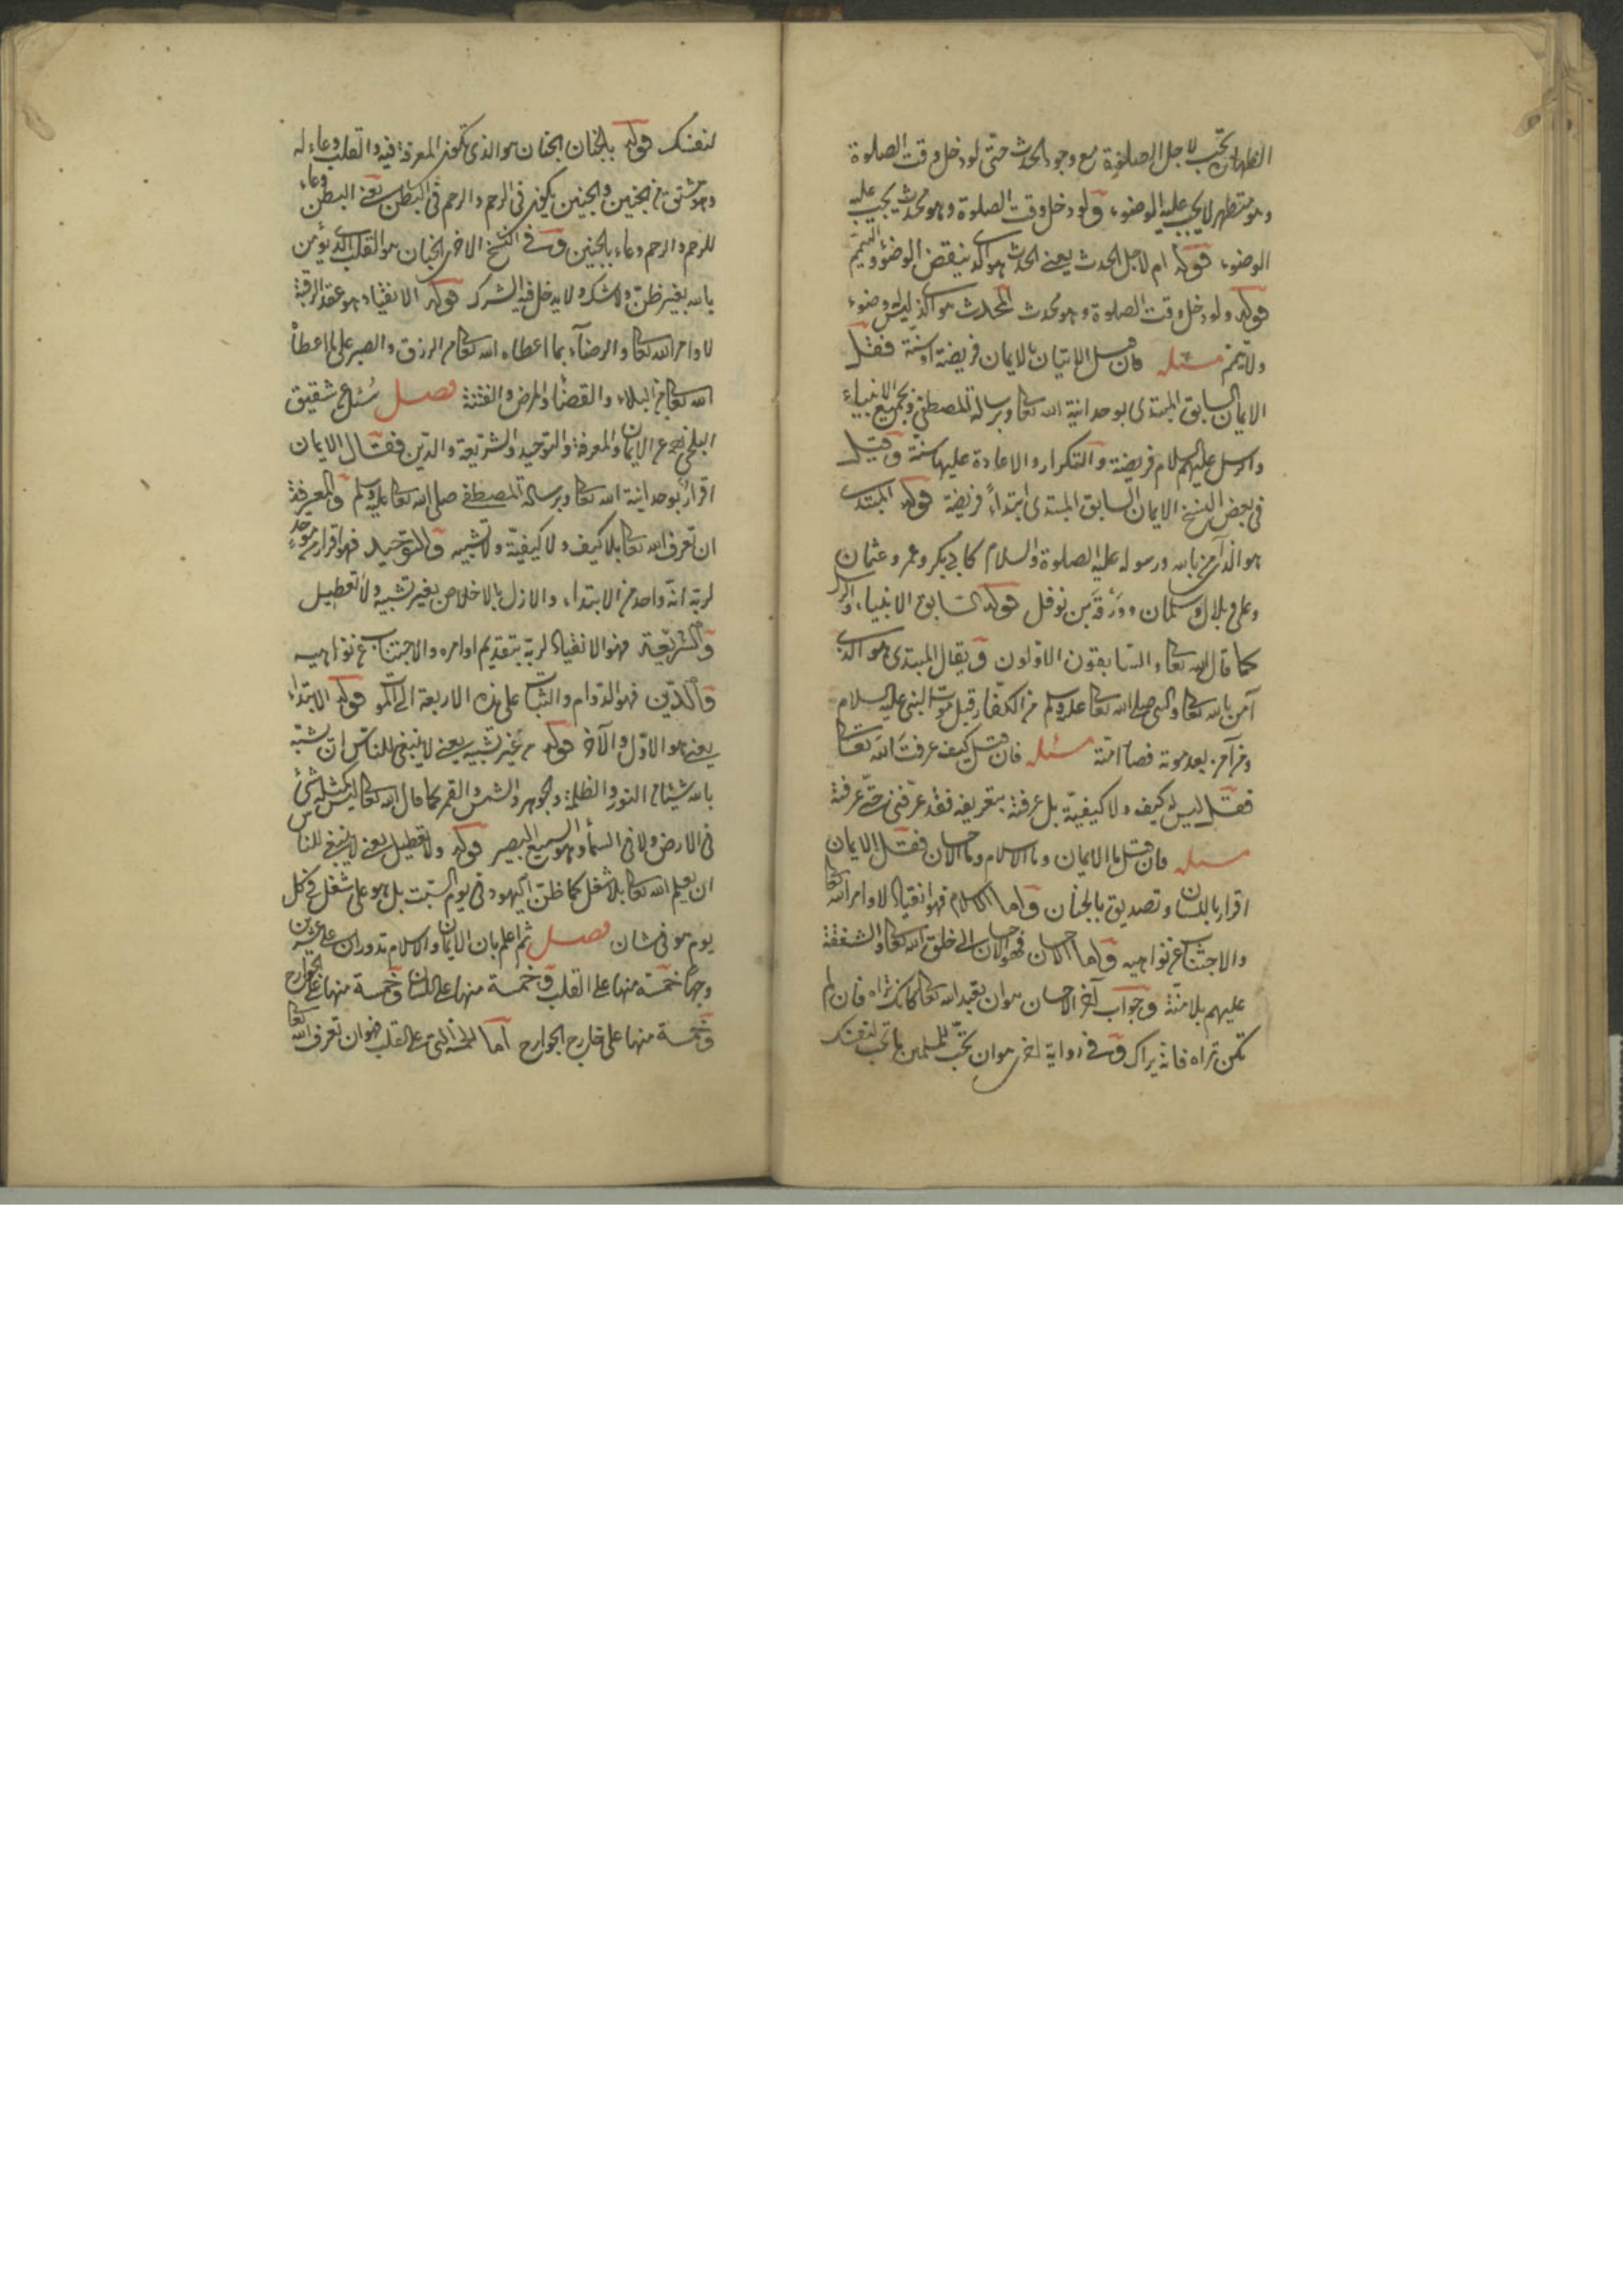 الطهارة تجب لاجل الصلوة مع وجود الحدث حتى لو دخل وقت الصلوة
وهو متطهر لا يجب عليه الوضوء ولو دخل وقت الصلوة وهو محدث يجب عليه
الوضوء قوله ام لاجل الحدث يعنى الحدث هو الذى ينقض الوضوء والتيمم
قوله ولو دخل وقت الصلوة وهو محدث المحدث هو الذى ليس له وضوء
ولا تيمم مسئله فان قيل الاتيان بالايمان فريضة او سنة فقل
الايمان السابق المبتدى بوحدانية الله تعالى وبرسالة المصطفى وبجميع الانبياء
والرسل عليهم السلام فريضة والتكرار والاعادة عليها سنة وقيل
فى بعض النسخ الايمان السابق المبتدى ابتداءً فريضة قوله المبتدى
هو الذى آمن بالله ورسوله عليه الصلوة والسلام كابى بكر وعمر وعثمان
وعلى وبلال وسلمان وورقة بن نوفل قوله السابق الانبياء والرسل
كما قال الله تعالى والسابقون الاولون ويقال المبتدى هو الذى
آمن بالله تعالى والنبى صلى الله تعالى عليه وسلم من الكفار قبل موت النبى عليه السلام
ومن آمن بعد موته فصار امته مسئله فان قيل كيف عرفت الله تعالى
فقل ليس له كيف ولا كيفية بل عرفته بتعريفه فقد عرفنى حتى عرفته
مسئله فان قيل ما الايمان وما الاسلام وما الاحسان فقل الايمان
اقرار باللسان وتصديق بالجنان واما الاسلام فهو انقياد لاوامر الله تعالى
والاجتناب عن نواهيه واما الاحسان فهو الاحسان الى خلق الله تعالى والشفقة
عليهم بلا منة وجواب آخر الاحسان هو ان تعبد الله تعالى كانك تراه فان لم
تكن تراه فانه يراك وفى رواية اخرى هو ان تحب للمسلمين ما تحب لنفسك
لنفسك قوله بالجنان الجنان هو الذى تكون المعرفة فيه والقلب وعاء له
وهو مشتق من الجنين والجنين يكون فى الرحم والرحم فى البطن يعنى البطن وعاء
للرحم والرحم وعاء بالجنين وفى النسخ الاخرى الجنان هو القلب الذى يؤمن
بالله بغير ظن ولا شك ولا يدخل فيه الشرك قوله الانقياد هو عقد الرقبة
لاوامر الله تعالى والرضاء بما اعطاه الله تعالى من الرزق والصبر على ما اعطاه
الله تعالى من البلاء والقضاء والمرض والفتنة فصل سئل عن شقيق
البلخى رحمه عن الايمان والمعرفة والتوحيد والشريعة والدين فقال الايمان
اقرار بوحدانية الله تعالى وبرسالة المصطفى صلى الله تعالى عليه وسلم والمعرفة
ان تعرف الله تعالى بلا كيف ولا كيفية ولا تشبيه والتوحيد فهو اقرار موحد
لربه انه واحد من الابتداء والازل بالاخلاص بغير تشبيه ولا تعطيل
والشريعة فهو الانقياد لربه بتقديم اوامره والاجتناب عن نواهيه
والدين فهو الدوام والثبات على هذه الاربعة الى الموت قوله الابتداء
يعنى هو الاول والآخر قوله من غير تشبيه يعنى لا ينبغى للناس ان تشبه
بالله شيئا من النور والظلمة والجوهر والشمس والقمر كما قال الله تعالى ليس كمثله شئ
فى الارض ولا فى السماء وهو السميع البصير قوله ولا تعطيل يعنى لا ينبغى للناس
ان يعلم الله تعالى بلا شغل كما ظن اليهود فى يوم السبت بل هو على شغل فى كل
يوم هو فى شان فصل ثم اعلم بان الايمان والاسلام تدوران على عشرين
وجها خمسة منها على القلب وخمسة منها على اللسان وخمسة منها على الجوارح
وخمسة منها على خارج الجوارح اما الخمسة التى على القلب فهو ان تعرف الله تعالى